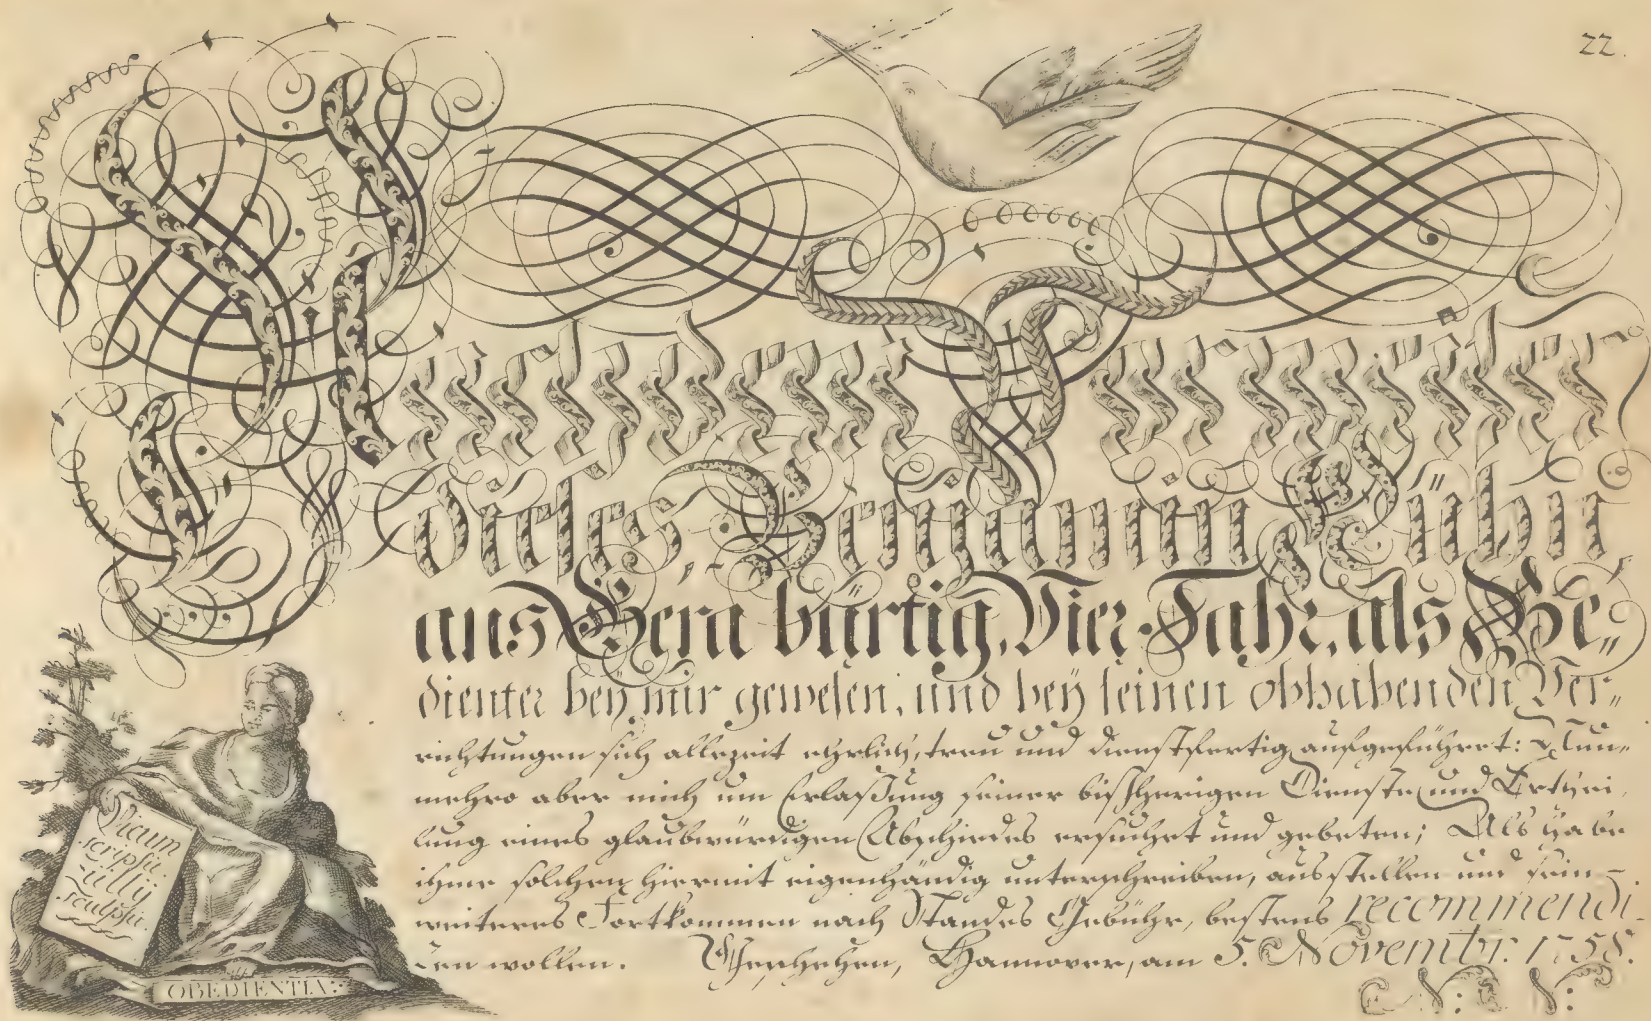 22.
Nachdem Vorweiser
dieses, Benjamin Kühn
aus Gera bürtig, Vier Jahr, als Be„
dienter beÿ mir gewesen, und beÿ seinen obhabenden Ver„
richtungen sich allezeit ehrlich, treu und dienstfertig aufgeführet: Nun„
mehro aber mich um Erlaßung seiner bißherigen Dienste, und Erthei„
lung eines glaubwürdigen Abschiedes ersuchet und gebeten; Als habe
ihme solchen hiermit eigenhändig unterschreiben, ausstellen und sein
weiteres Fortkommen nach Standes Gebühr, bestens recommendi„
ren wollen. Geschehen, Hannover, am 5. Novembr. 1758.
N: N:
Vicum
scripsit.
Zülly
sculpsit.
OBEDIENTIA.